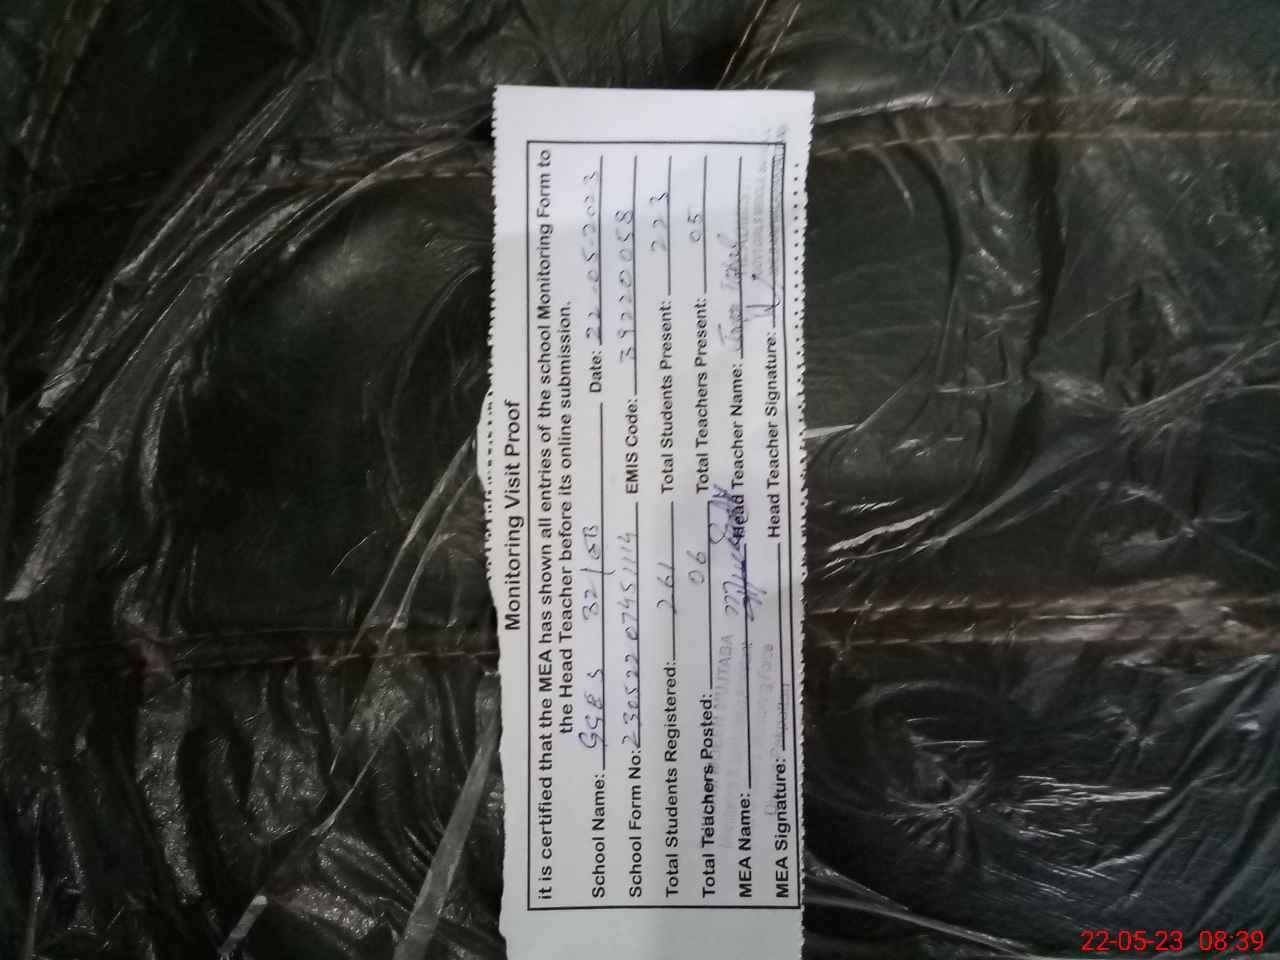 Monitoring Visit Proof
it is certified that the MEA has shown all entries of the school Monitoring Form to
the Head Teacher before its online submission.
School Name: GGES 32/GB Date: 22-05-2023
School Form No: 23052207451114 EMIS Code: 39220058
Total Students Registered: 261 Total Students Present: 223
Total Teachers Posted: 06 Total Teachers Present: 05
MEA Name: Head Teacher Name:
MEA Signature: Head Teacher Signature:
22-05-23 08:39